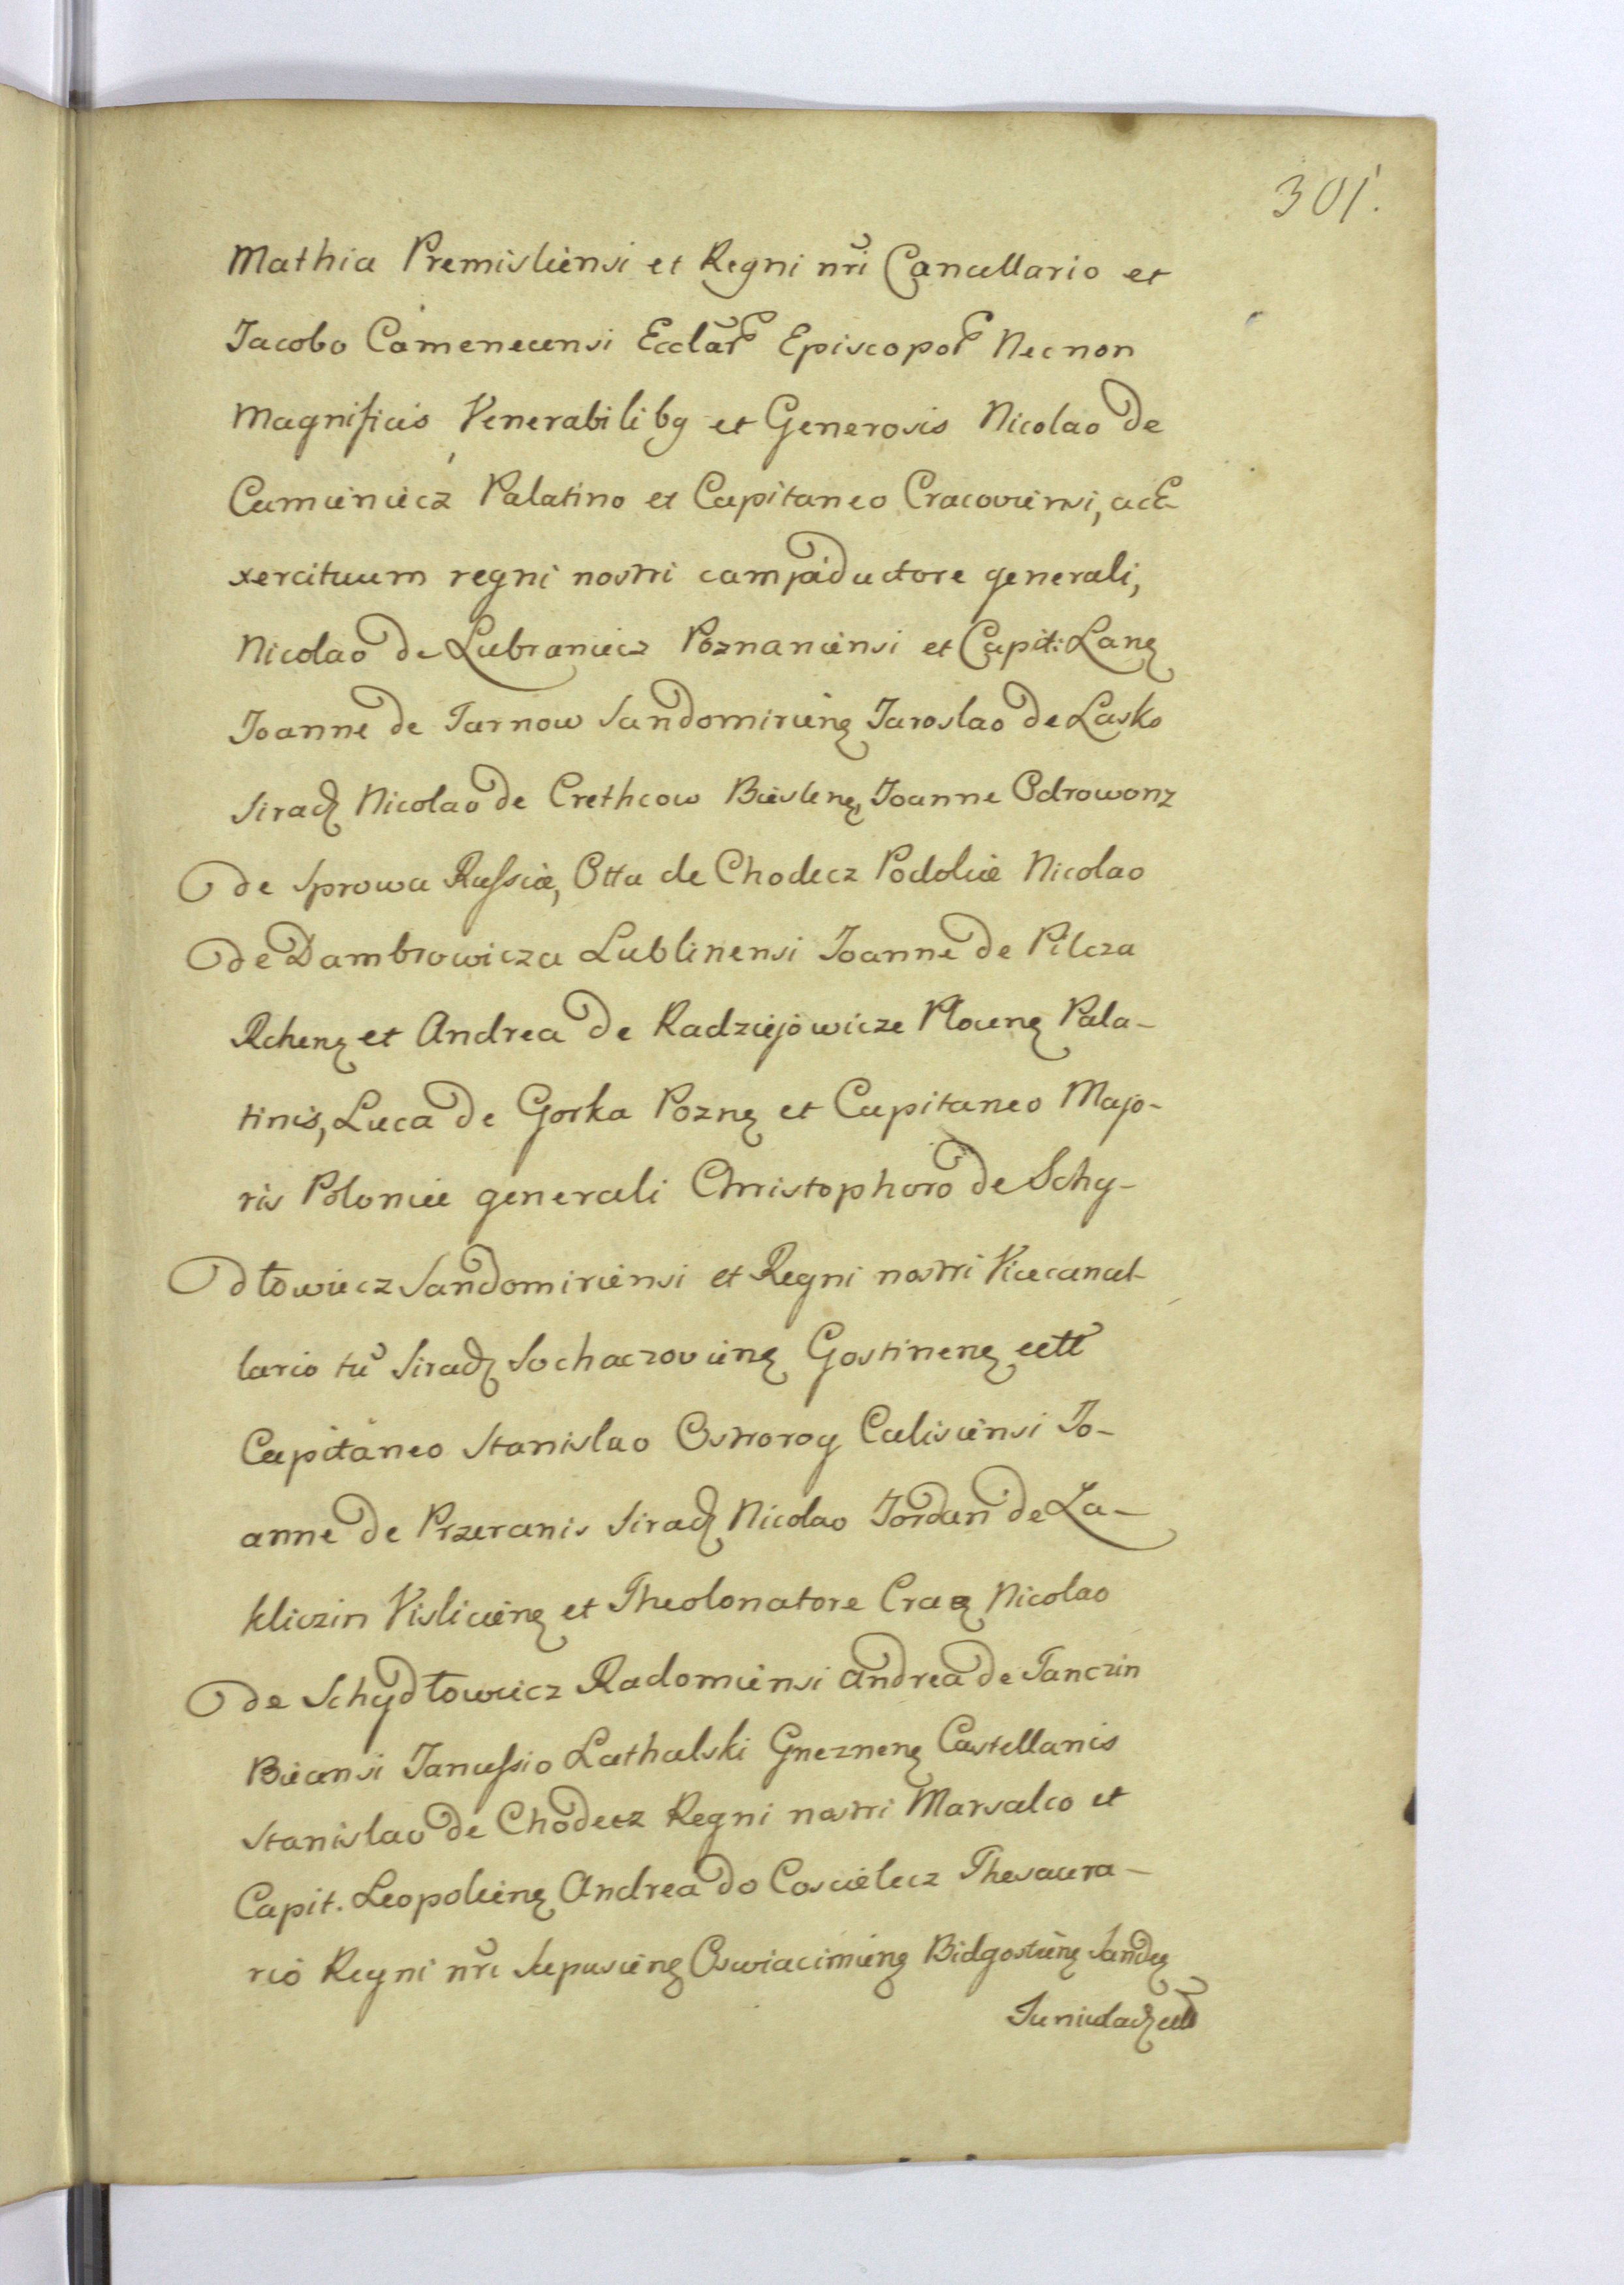 301.
Mathia Premisliensi et Regni nr̃i Cancellario et
Jacobo Camenecensi Ecclar̃ Episcopor̃ Necnon
Magnificis Venerabilibg et Generosis Nicolao de
Camieniecz Palatino et Capitaneo Cracoviensi, ac E-
xercituum regni nostri campiductore generali,
Nicolao de Lubraniecz Poznaniensi et Capit: Lanȩ
Joanne de Tarnow Sandomirienȩ Jaroslao de Lasko
Siradȝ Nicolao de Crethcow Brestenȩ, Joanne Odrowonz
de Sprowa Russiæ, Otta de Chodecz Podoliæ Nicolao
de Dambrowicza Lublinensi Joanne de Pilcza
Rchenȩ et Andrea de Radziejowicze Plocenȩ Pala-
tinis, Luca de Gorka Poznȩ et Capitaneo Majo-
ris Poloniæ generali Christophoro de Schy-
dłowiecz Sandomiriensi et Regni nostri Vicecancel-
lario tũ Siradȝ Sochaczovienȩ Gostinenȩ ett
Capitaneo Stanislao Ostrorog Calisiensi Jo-
anne de Przeranis Siradȝ Nicolao Jordan de Za-
kliczin Vislicienȩ et Theolonatore Cracȩ Nicolao
de Schydłowiecz Radomiensi Andrea de Tanczin
Biecensi Janussio Lathalski Gneznenȩ Castellanis
Stanislao de Chodecz Regni nostri Marsalco et
Capit. Leopolienȩ Andrea do Coscielecz Thesaura-
rio Regni nr̃i Scepusienȩ Oswiacimienȩ Bidgostienȩ Sandȩ
Juniuladȝ